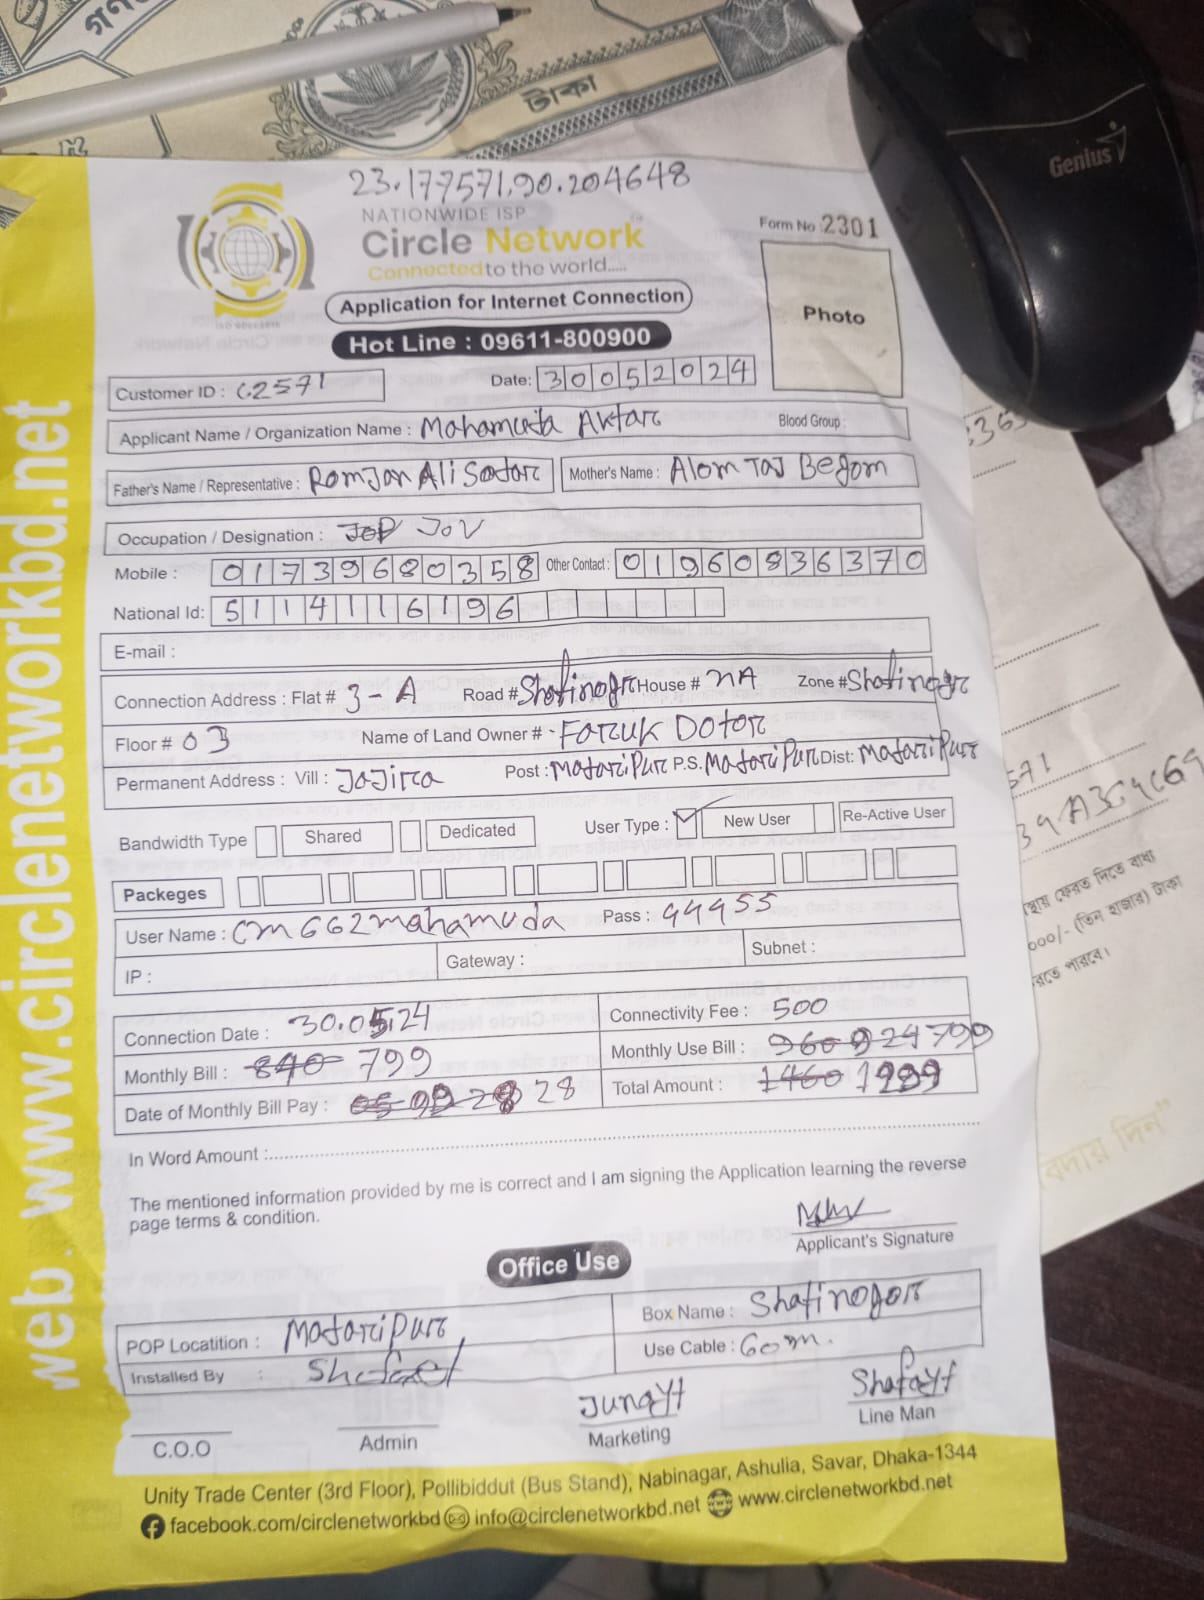 টাকা
23.177571,90.204648
NATIONWIDE ISP
Circle Network
Connected to the world.....
Form No 2301
Application for Internet Connection
Hot Line : 09611-800900
Photo
Genius
Customer ID : C2571
Date: 30052024
Applicant Name / Organization Name : Mahamuda Aktar Blood Group :
Father's Name / Representative : Romjan Ali Sodar Mother's Name : Alom Taj Begom
Occupation / Designation : Job Jov
Mobile : 01739680358 Other Contact : 01960836370
National Id: 5114116196
E-mail :
Connection Address : Flat # 3-A Road # Shafinogr House # NA Zone # Shafinogr
Floor # 03 Name of Land Owner # - Faruk Dotor
Permanent Address : Vill : JaJira Post : Mataripur P.S. Mataripur Dist: Mataripur
Bandwidth Type Shared Dedicated User Type : New User Re-Active User
Packeges
User Name : CM662mahamuda Pass : 44455
IP : Gateway : Subnet :
Connection Date : 30.05.24 Connectivity Fee : 500
Monthly Bill : 840 799 Monthly Use Bill : 960 924 799
Date of Monthly Bill Pay : 28 Total Amount : 1460
In Word Amount :
The mentioned information provided by me is correct and I am signing the Application learning the reverse
page terms & condition.
Applicant's Signature
Office Use
POP Locatition : Mataripur Box Name : Shafinogor
Installed By : Use Cable : 60m.
Junayt Shafayt
C.O.O Admin Marketing Line Man
Unity Trade Center (3rd Floor), Pollibiddut (Bus Stand), Nabinagar, Ashulia, Savar, Dhaka-1344
facebook.com/circlenetworkbd info@circlenetworkbd.net www.circlenetworkbd.net
web. www.circlenetworkbd.net
ফেরত দিতে বাধ্য
০০০/- (তিন হাজার) টাকা
পারবে।